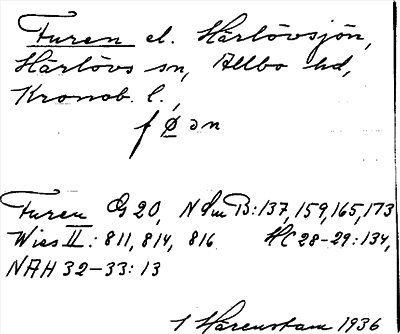 Furen el. Härlövsjön,
Härlövs sn, Allbo hd,
Kronob. l.,
fø̱ən
Furen G 20, NSmB: 137, 159, 165, 173
Wies II: 811, 814, 816 HC 28-29: 134,
NAH 32-33: 13
Härenstam 1936